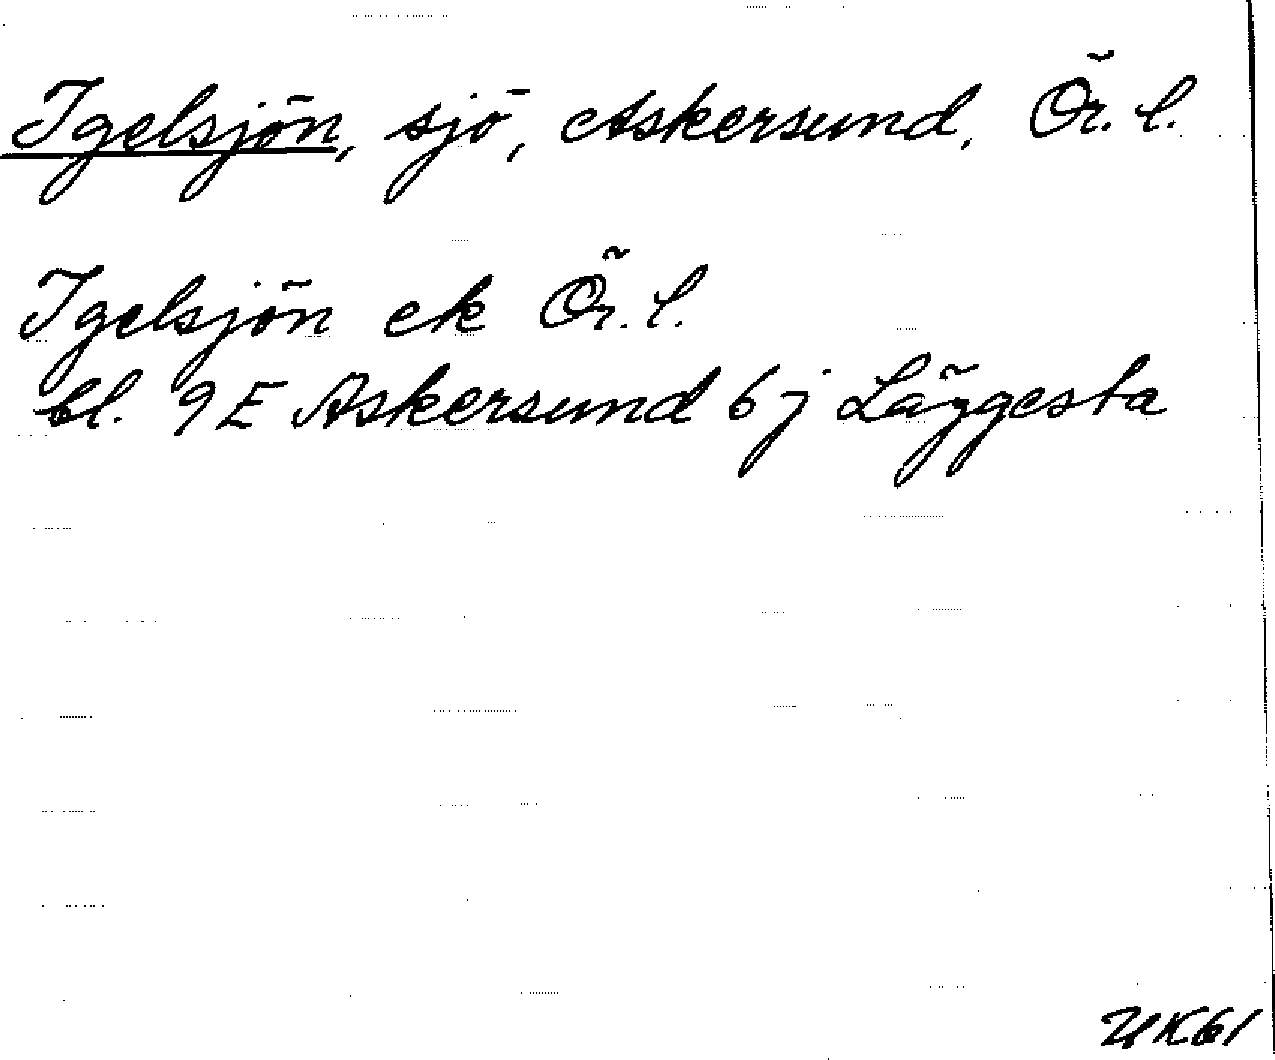 Igelsjön, sjö, Askersund, Ör. l.
Igelsjön ek Ör. l.
bl. 9E Askersund 6j Läggesta
UK61